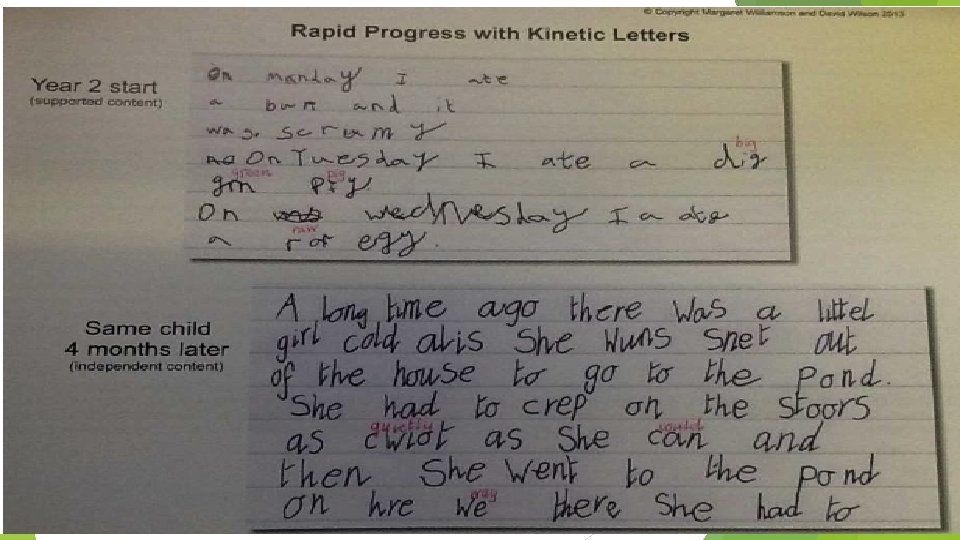 © Copyright Margaret Williamson and David Wilson 2013
Rapid Progress with Kinetic Letters
Year 2 start
(supported content)
On manday I ate
a bun and it
was scrumy
On Tuesday I ate a dig
big
gm pry
green pig
On wednesday I a ate
a rot egy.
raw
Same child
4 months later
(independent content)
A long time ago there was a littel
girl cold alis She Wuns Snet out
of the house to go to the pond.
She had to crep on the stoors
as cwiot as She can and
quietly could
then She went to the pond
on hre we there She had to
way